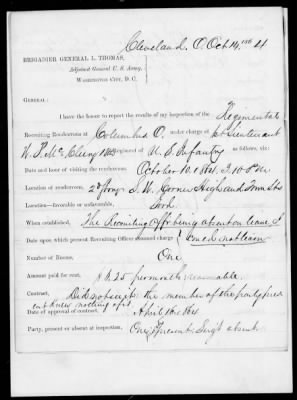 Cleveland, O. Oct 14, 1864
BRIGADIER GENERAL L. THOMAS,
Adjutant General U. S. Army,
WASHINGTON CITY, D. C.
GENERAL:
I have the honor to report the results of my inspection of the Regimental
Recruiting Rendezvous at Columbus O. under charge of 1st Lieutenant
of U.S. Infantry as follows, viz:
Date and hour of visiting the rendezvous, October 10. 1864, 3.10 P.M.
Location of rendezvous, S.W. Corner High and
Location—favorable or unfavorable,
When established, The Recruiting Off. being absent on leave, I
Date upon which present Recruiting Officer assumed charge could not learn
Number of Rooms, One
Amount paid for rent, $ 8.25 per month, reasonable.
Contract, Did not see it; the member of the party present
knew nothing of it
Date of approval of contract, April 1864
Party, present or absent at inspection, One present. Serg't absent